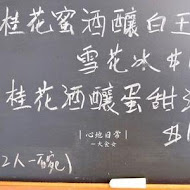 桂花蜜酒釀白玉
雪花冰 $
桂花酒釀蛋甜
$
(2人一碗)
|心地日常|
一大食女